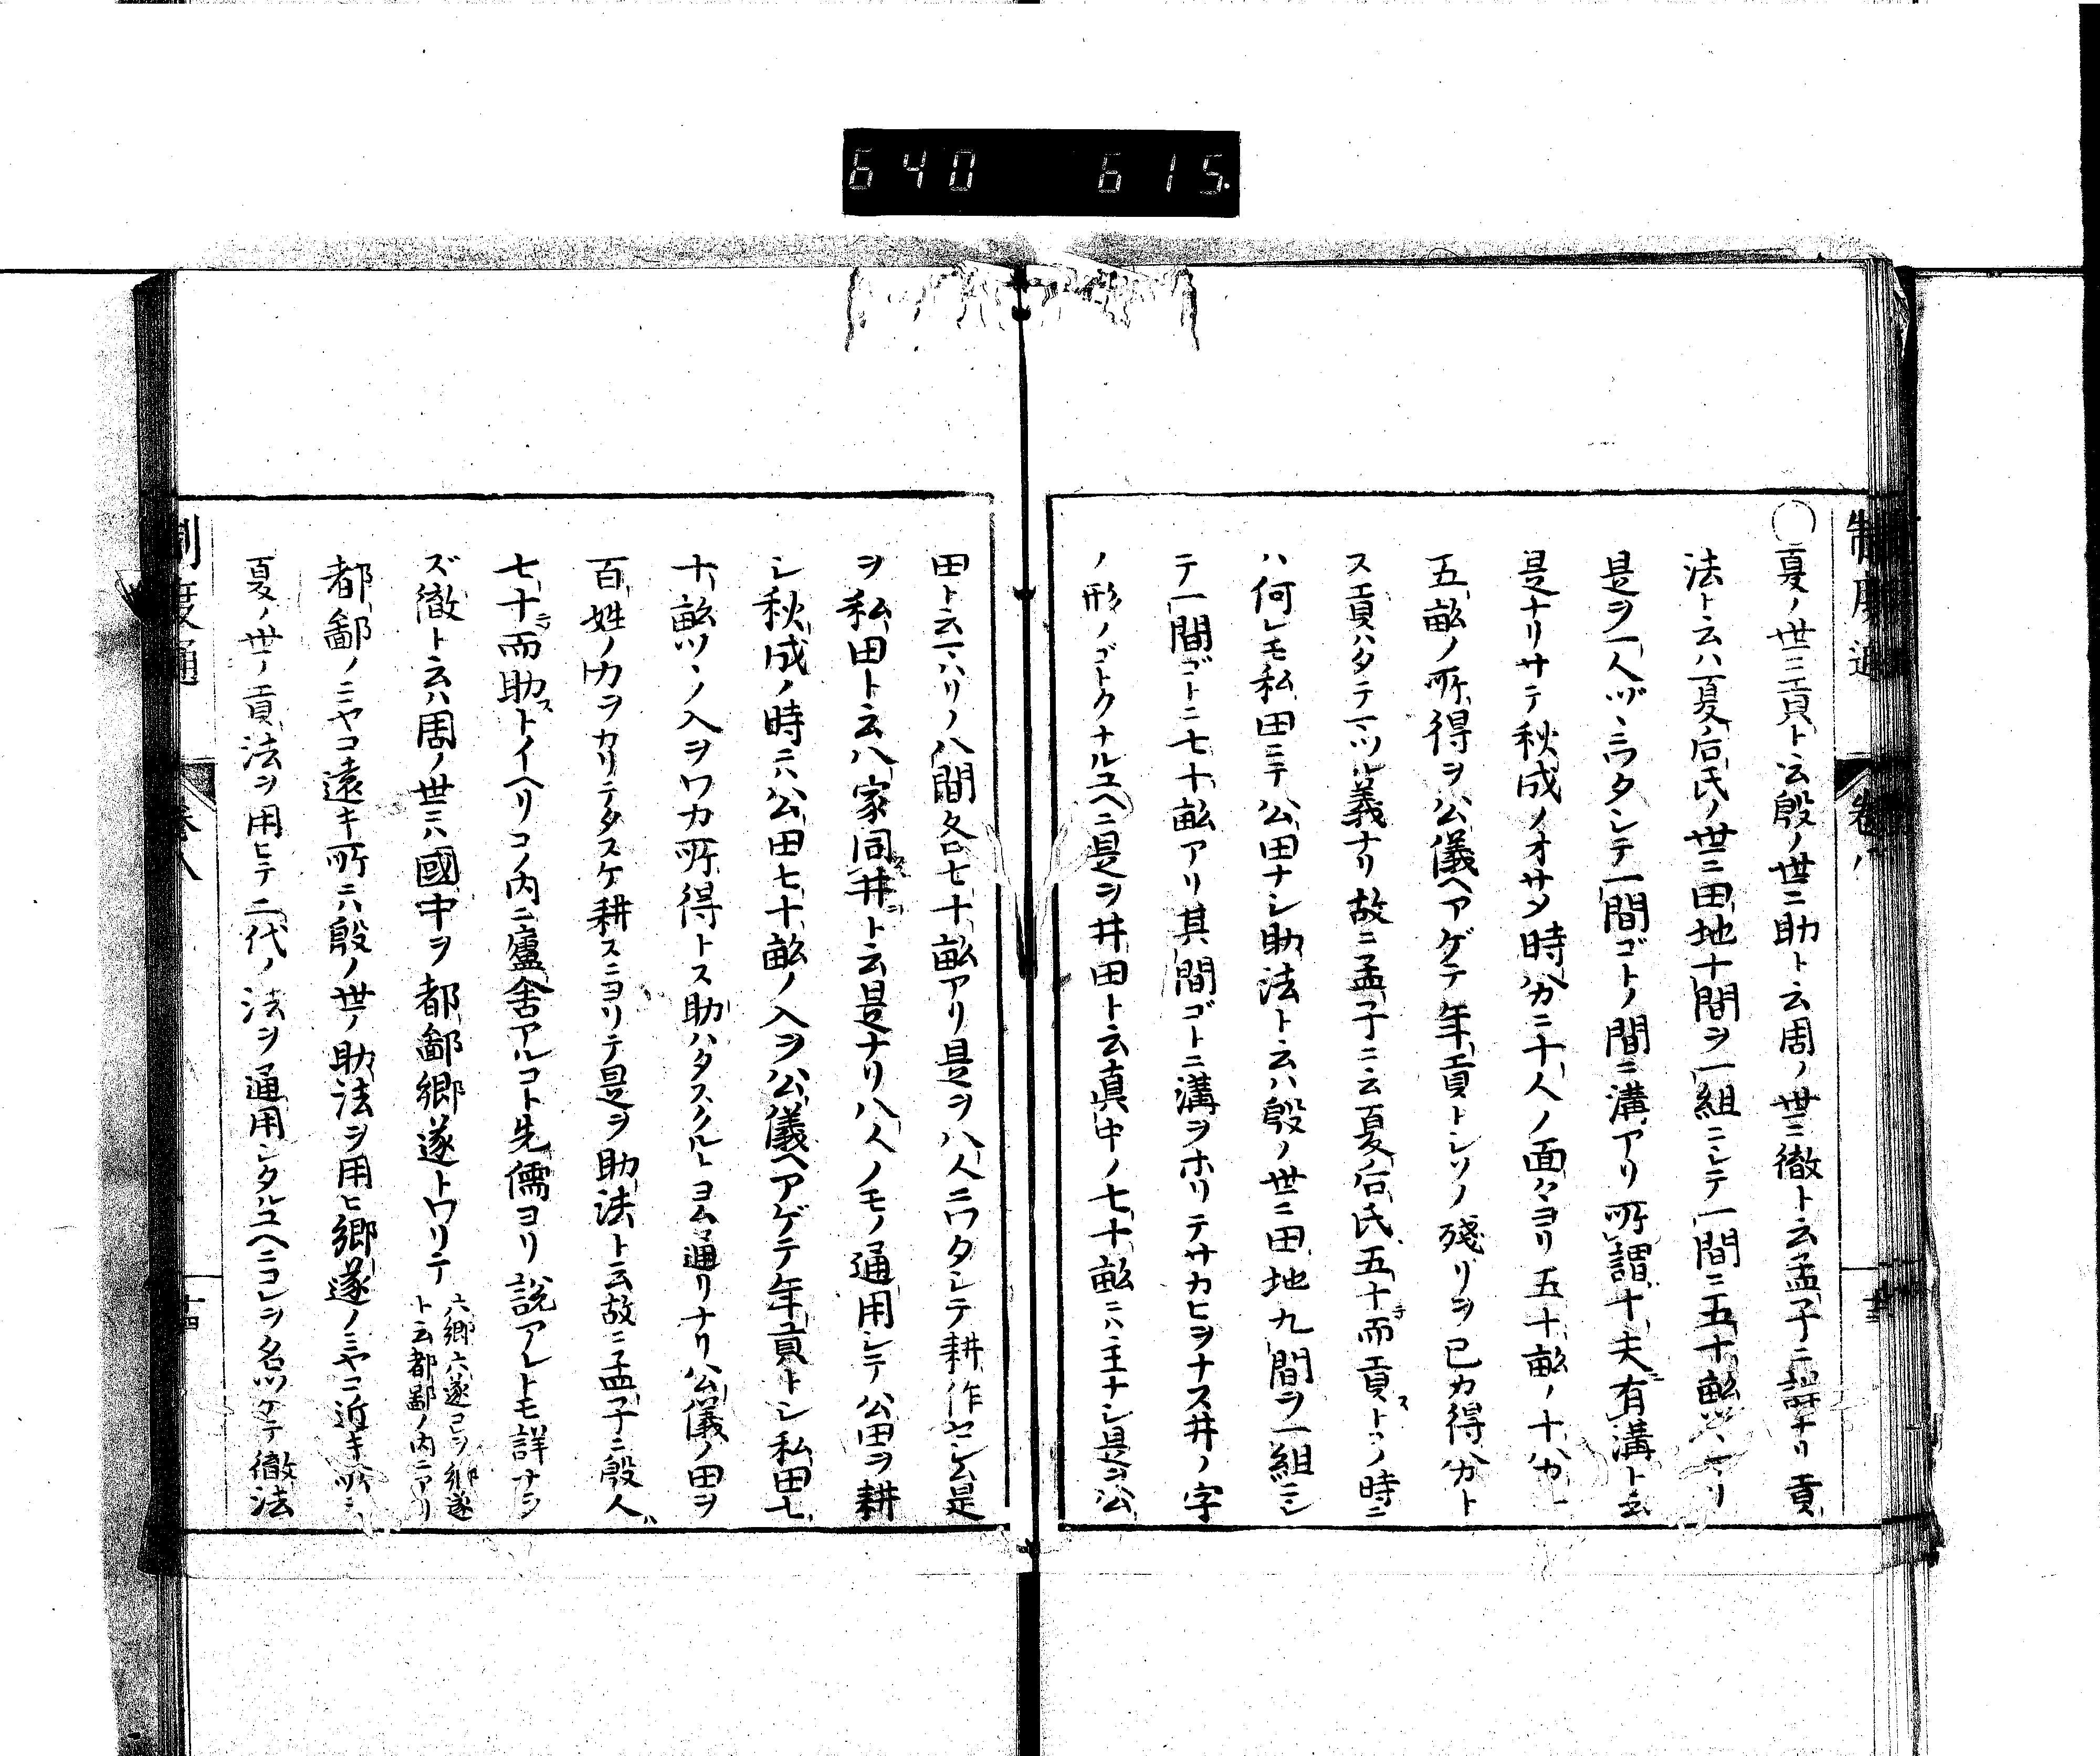 640 615
制度通 卷八 十三
○夏ノ世ニ貢ト云殷ノ世ニ助ト云周ノ世ニ徹ト云孟子ニ詳ナリ貢
法ト云ハ夏后氏ノ世ニ田地十間ヲ一組ニシテ一間ニ五十畝ツヽアリ
是ヲ一人ヅヽニワタシテ一間ゴトノ間ニ溝アリ所謂十夫有溝ト云
是ナリサテ秋成ノオサメ時分ニ十人ノ面〻ヨリ五十畝ノ十分一
五畝ノ所得ヲ公儀ヘアゲテ年貢トシソノ殘リヲ己カ得分ト
ス貢ハタテマツル義ナリ故ニ孟子ニ云夏后氏五十而貢スト此時ニ
ハ何レモ私田ニテ公田ナシ助法ト云ハ殷ノ世ニ田地九間ヲ一組ニシ
テ一間ゴトニ七十畝アリ其間ゴトニ溝ヲホリテサカヒヲナス井ノ字
ノ形ノゴトクナルユヘニ是ヲ井田ト云真中ノ七十畝ニハ主ナシ是ヲ公
田ト云マハリノ八間各七十畝アリ是ヲ八人ニワタシテ耕作セシム是
ヲ私田ト云八家同井ト云是ナリ八人ノモノ通用シテ公田ヲ耕
シ秋成ノ時ニハ公田七十畝ノ入ヲ公儀ヘアゲテ年貢トシ私田七
十畝ツヽノ入ヲワカ所得トス助ハタスクルトヨム通リナリ公儀ノ田ヲ
百姓ノ力ヲカリテタスケ耕スニヨリテ是ヲ助法ト云故ニ孟子ニ殷人
七十ニシテ而助ストイヘリコノ内ニ廬舍アルコト先儒ヨリ說アレトモ詳ナラ
ズ徹ト云ハ周ノ世ニハ國中ヲ都鄙鄉遂トワリテ六鄉六遂コヲ鄉遂ト云都鄙ノ内ニアリ
都鄙ノミヤコ遠キ所ニハ殷ノ世ノ助法ヲ用ヒ鄉遂ノミヤコ近キ所ニハ
夏ノ世ノ貢法ヲ用ヒテ二代ノ法ヲ通用シタルユヘニコレヲ名ツケテ徹法
制度通 卷八 十四